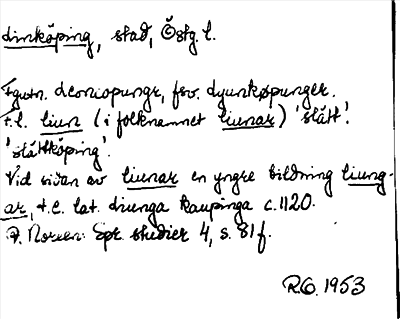 Linköping, stad, Östg. l.
Fgutn. Leoniopungr, fsv. Lyunkøpunger.
t.l. liun (i folknamnet liunar) 'slätt'.
'slättköping'.
Vid sidan av liunar en yngre bildning liung-
ar, t.ex. lat. liunga kaupinga c. 1120.
A. Noreen: Spr. studier 4, s. 81 f.
R.O. 1953